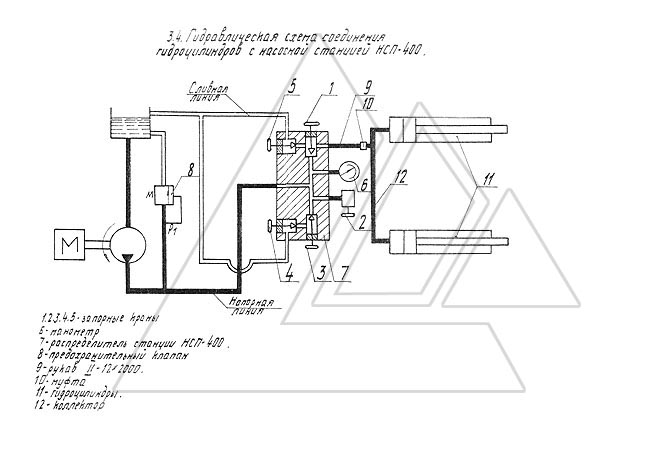 3.4. Гидравлическая схема соединения
гидроцилиндров с насосной станцией НСП-400.
Сливная
линия
5
1
9
10
М
8
P1
6
2
12
11
М
4
3
7
Напорная
линия
1.2.3.4.5-запорные краны
6-манометр
7-распределитель станции НСП-400.
8-предохранительный клапан
9-рукав II-12/2000.
10-муфта
11-гидроцилиндры.
12-коллектор